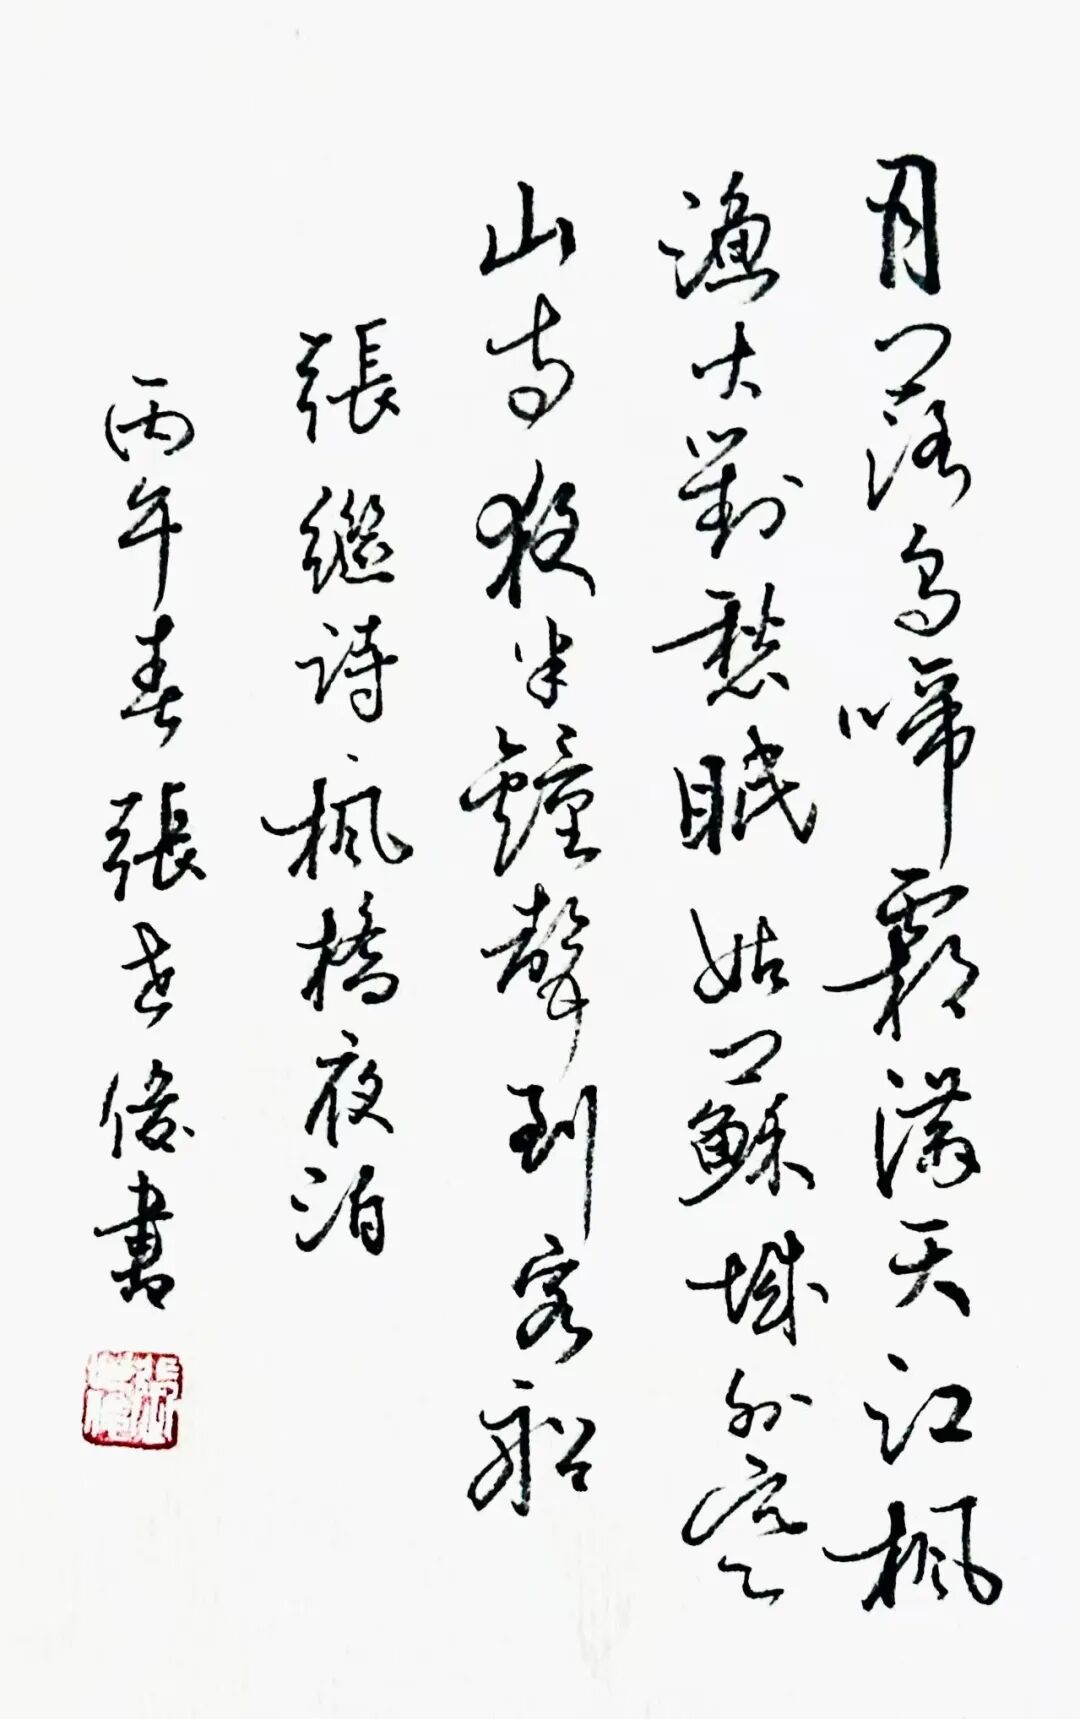 月落烏啼霜滿天江楓
漁火對愁眠姑蘇城外寒
山寺夜半鐘聲到客船
張繼詩楓橋夜泊
丙午春張世俊書